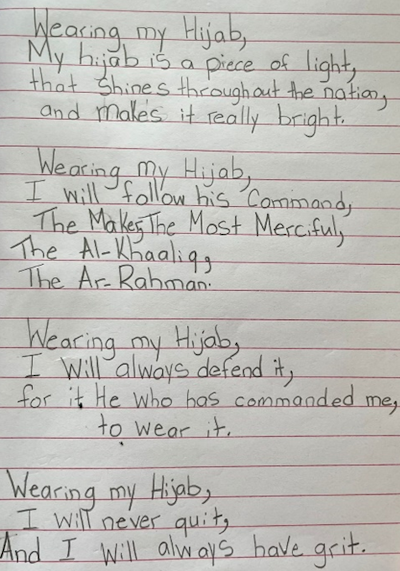 Wearing my Hijab,
My hijab is a piece of light,
that shines throughout the nation,
and makes it really bright.
Wearing my Hijab,
I will follow his Command,
The Maker, The Most Merciful,
The Al-Khaaliq,
The Ar-Rahman.
Wearing my Hijab,
I will always defend it,
for it He who has commanded me,
to wear it.
Wearing my Hijab,
I will never quit,
And I will always have grit.